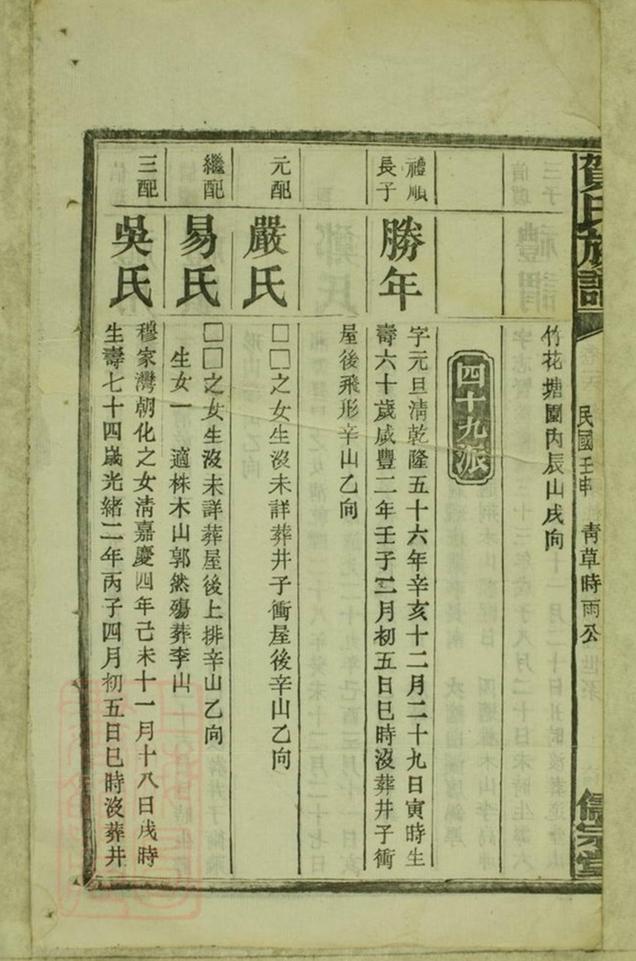 賀氏族譜
民國壬申
青草時雨公
儒宗堂
竹花塘圍內辰山戌向
四十九派
禮順
長子
勝年
字元旦清乾隆五十六年辛亥十二月二十九日寅時生
壽六十歲咸豐二年壬子二月初五日巳時沒葬井子衝
屋後飛形辛山乙向
元配
嚴氏
□□之女生沒未詳葬井子衝屋後辛山乙向
繼配
易氏
□□之女生沒未詳葬屋後上排辛山乙向
生女一 適株木山郭然殤葬李山
三配
吳氏
穆家灣朝化之女清嘉慶四年己未十一月十八日戌時
生壽七十四歲光緒二年丙子四月初五日巳時沒葬井